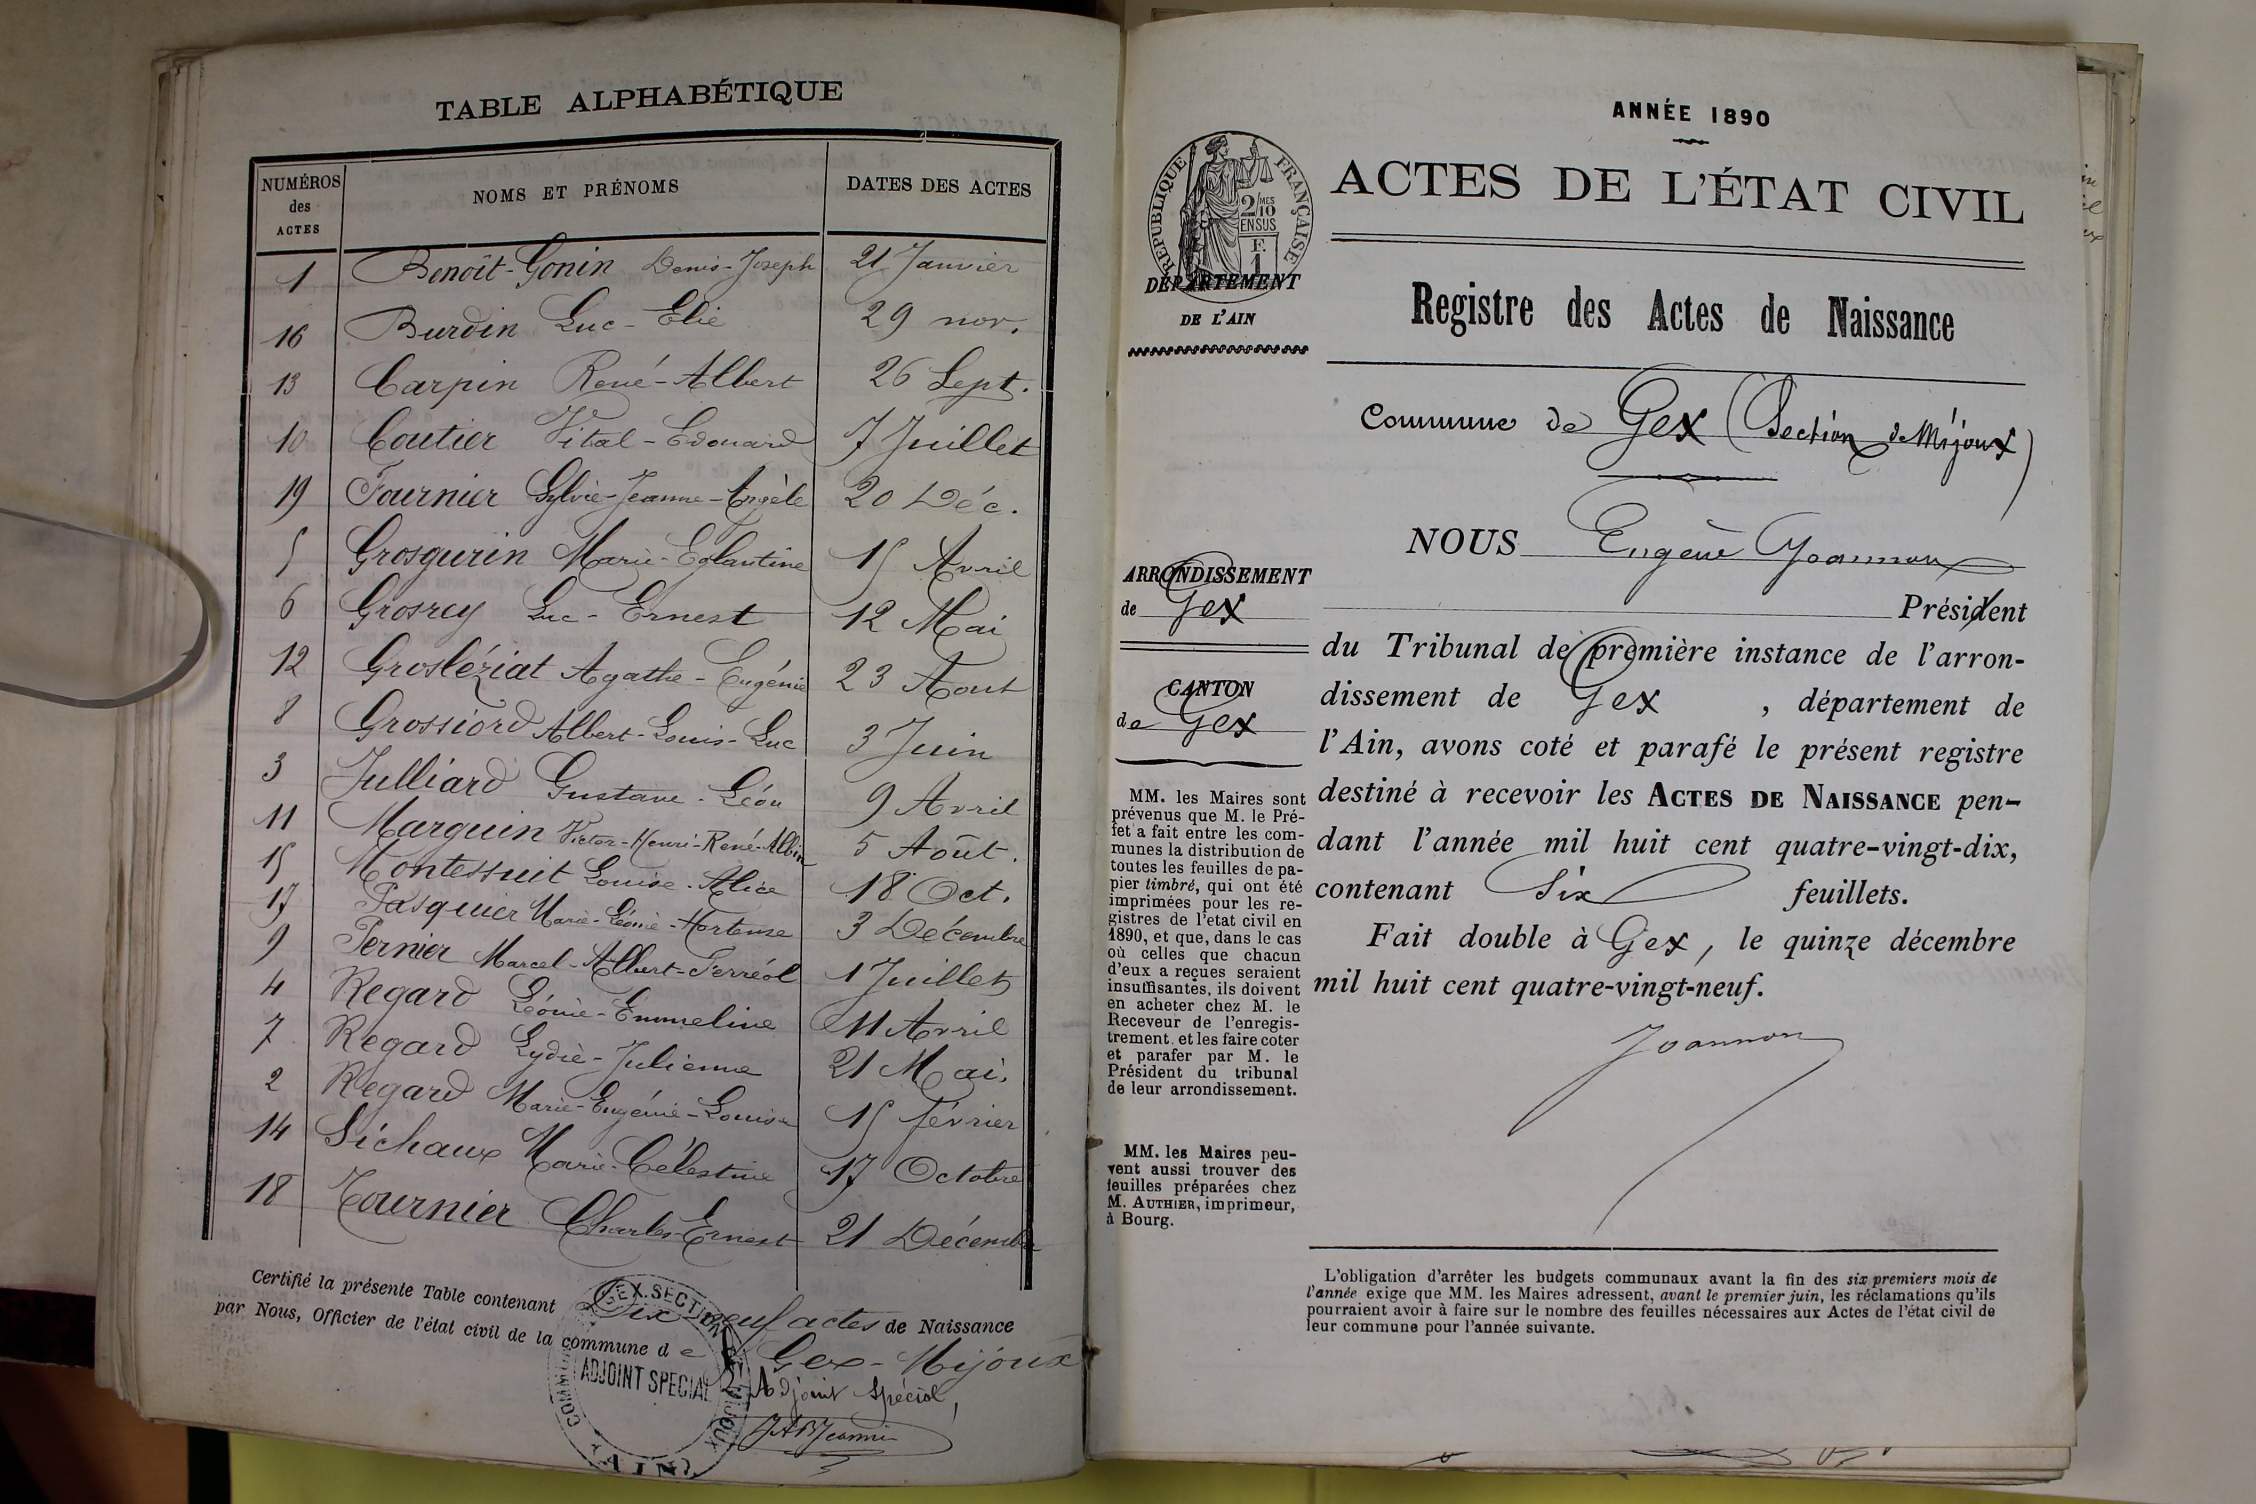 TABLE ALPHABÉTIQUE
NUMÉROS des ACTES NOMS ET PRÉNOMS DATES DES ACTES
1 Benoît-Gonin Denis-Joseph 21 Janvier
16 Burdin Luc-Elie 29 nov.
13 Carpin René-Albert 26 Sept.
10 Coutier Vital-Edouard 7 Juillet
19 Fournier Sylvie-Jeanne-Angèle 20 Déc.
5 Grosgurin Marie-Eglantine 15 Avril
6 Grosrey Luc-Ernest 12 Mai
12 Grosléziat Agathe-Eugénie 23 Aout
8 Grossiord Albert-Louis-Luc 3 Juin
3 Julliard Gustave-Léon 9 Avril
11 Marguin Victor-Henri-René-Albin 5 Août.
15 Montessuit Louise-Alice 18 Oct.
17 Pasquier Marie-Léonie-Hortense 3 Décembre
9 Pernier Marcel-Albert-Ferréol 1 Juillet
4 Regard Léonie-Emmeline 11 Avril
7 Regard Lydie-Julienne 21 Mai.
2 Regard Marie-Eugénie-Louise 15 février
14 Séchaux Marie-Célestine 17 Octobre
18 Tournier Charles-Ernest 21 Décembre
Certifié la présente Table contenant Dix neuf actes de Naissance
par Nous, Officier de l'état civil de la commune de Gex-Mijoux
GEX.SECTION
ADJOINT SPECIAL
MIJOUX
AIN
Adjoint Spécial,
ANNÉE 1890
ACTES DE L'ÉTAT CIVIL
RÉPUBLIQUE FRANÇAISE
2 MES 10
EN SUS
F. 1
DÉPARTEMENT
DE L'AIN
Registre des Actes de Naissance
Commune de Gex (Section de Mijoux)
NOUS Eugène Joannon
Président
ARRONDISSEMENT
de Gex
CANTON
de Gex
du Tribunal de première instance de l'arron-
dissement de Gex, département de
l'Ain, avons coté et parafé le présent registre
destiné à recevoir les ACTES DE NAISSANCE pen-
dant l'année mil huit cent quatre-vingt-dix,
contenant Six feuillets.
Fait double à Gex, le quinze décembre
mil huit cent quatre-vingt-neuf.
Joannon
MM. les Maires sont
prévenus que M. le Pré-
fet a fait entre les com-
munes la distribution de
toutes les feuilles de pa-
pier timbré, qui ont été
imprimées pour les re-
gistres de l'etat civil en
1890, et que, dans le cas
où celles que chacun
d'eux a reçues seraient
insuffisantes, ils doivent
en acheter chez M. le
Receveur de l'enregis-
trement, et les faire coter
et parafer par M. le
Président du tribunal
de leur arrondissement.
MM. les Maires peu-
vent aussi trouver des
feuilles préparées chez
M. AUTHIER, imprimeur,
à Bourg.
L'obligation d'arrêter les budgets communaux avant la fin des six premiers mois de
l'année exige que MM. les Maires adressent, avant le premier juin, les réclamations qu'ils
pourraient avoir à faire sur le nombre des feuilles nécessaires aux Actes de l'état civil de
leur commune pour l'année suivante.